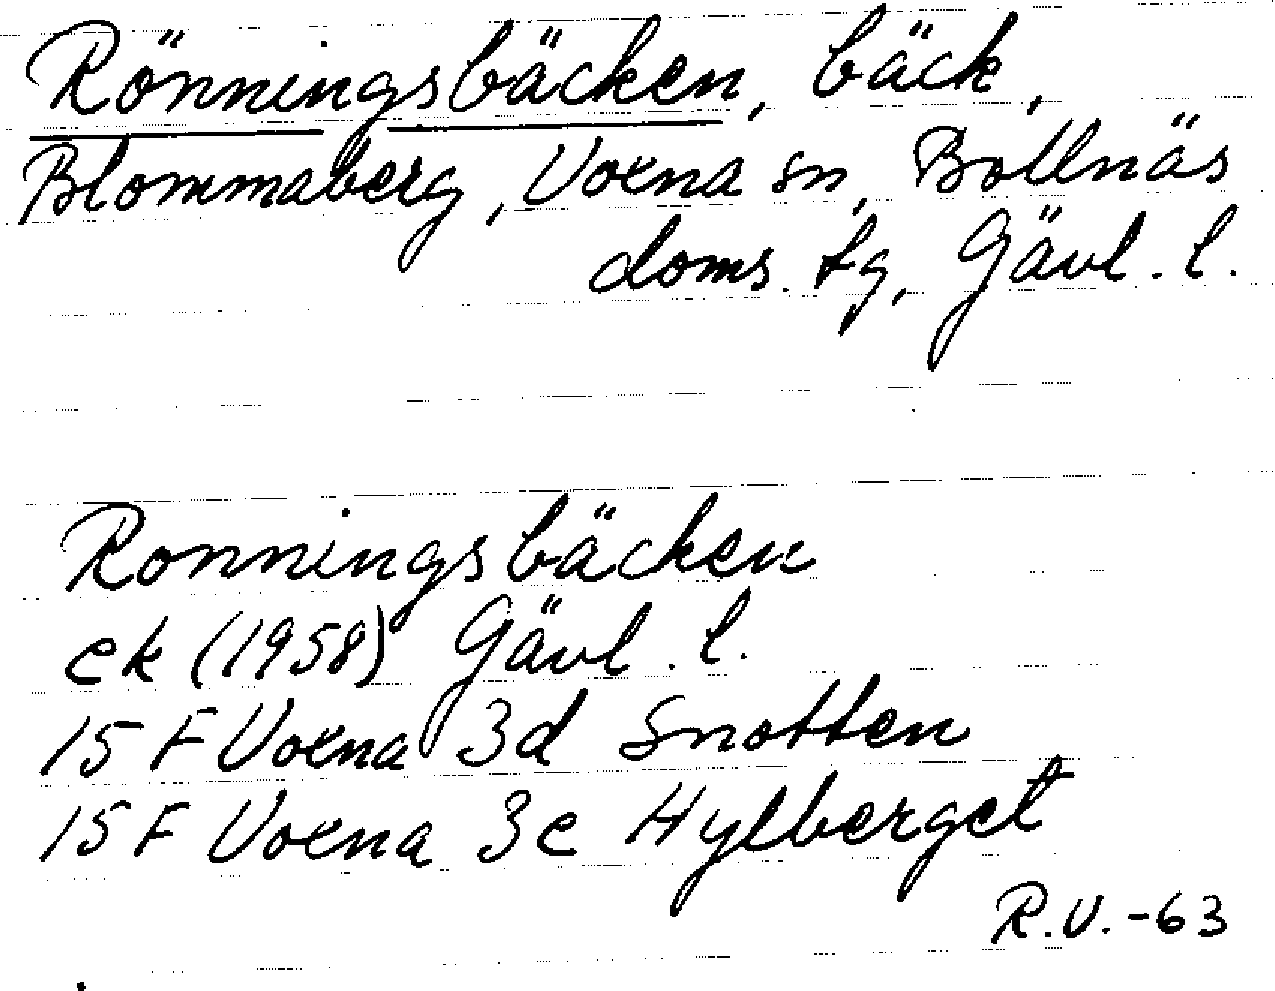 Rönningsbäcken, bäck,
Blommaberg, Voxna sn, Bollnäs
doms. tg, Gävl. l.
Ronningsbäcken
ek (1958) Gävl. l.
15 F Voxna 3d Snotten
15 F Voxna 3e Hylberget
R.V.-63